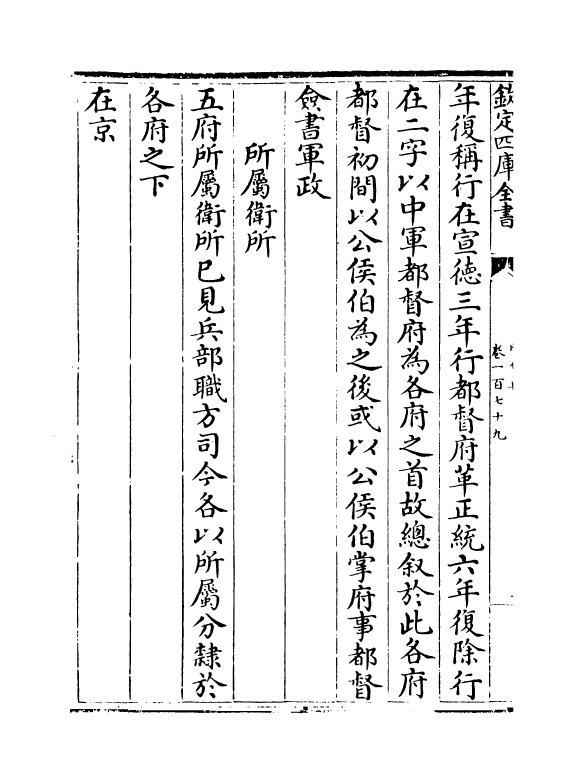 欽定四庫全書
卷一百七十九
年復稱行在宣德三年行都督府革正統六年復除行
在二字以中軍都督府為各府之首故總叙於此各府
都督初間以公侯伯為之後或以公侯伯掌府事都督
僉書軍政
所屬衛所
五府所屬衛所已見兵部職方司今各以所屬分隸於
各府之下
在京